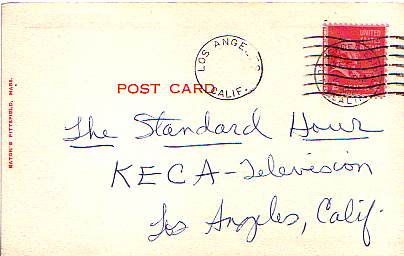 LOS ANGELES
CALIF.
UNITED
POST CARD
CALIF
EATON'S PITTSFIELD, MASS.
The Standard Hour
KECA-Television
Los Angeles, Calif.